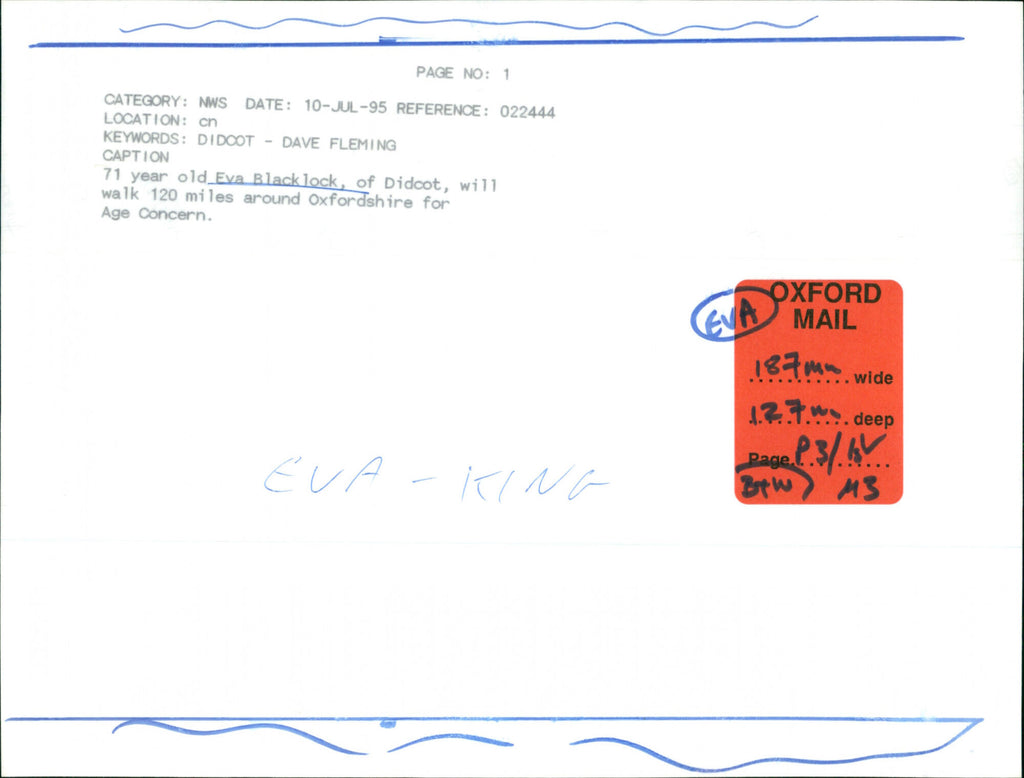 PAGE NO: 1
CATEGORY: NWS DATE: 10-JUL-95 REFERENCE: 022444
LOCATION: cn
KEYWORDS: DIDCOT - DAVE FLEMING
CAPTION
71 year old Eva Blacklock, of Didcot, will
walk 120 miles around Oxfordshire for
Age Concern.
OXFORD
MAIL
EVA
187mm wide
127mm deep
Page P3/
B+W
EVA - KING